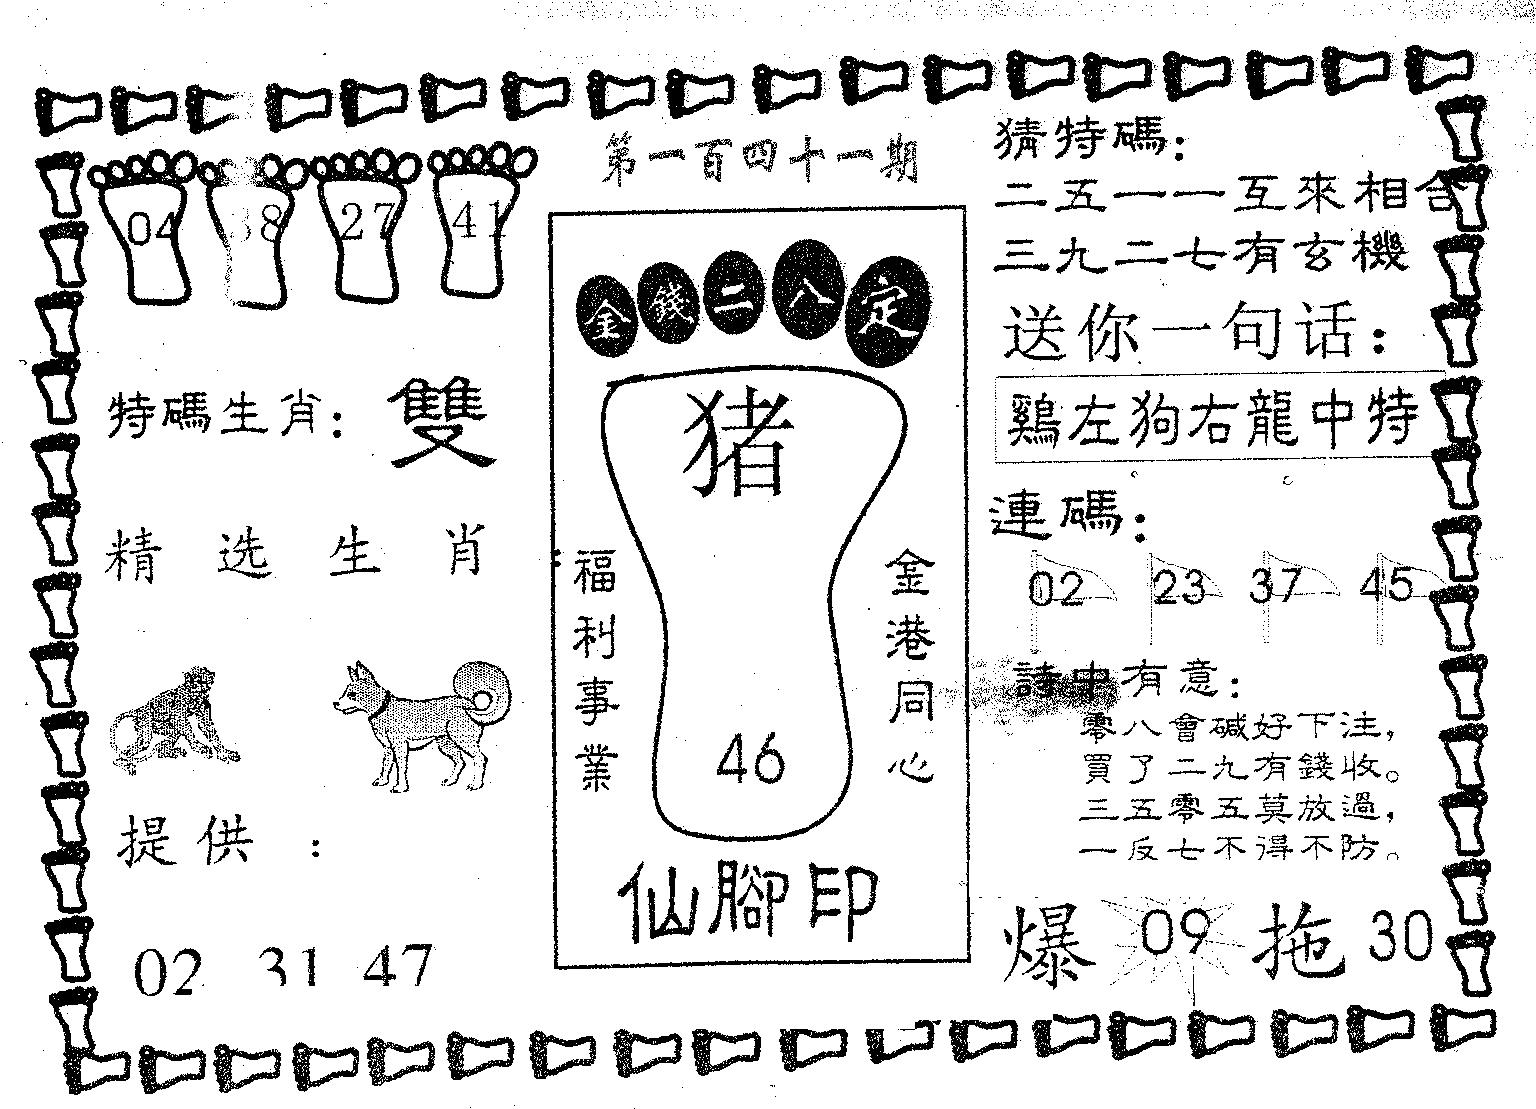 第一百四十一期
04 38 27 41
特碼生肖：雙
精选生肖：
提供：
02 31 47
金錢二八定
猪
福利事業
金港同心
46
仙腳印
猜特碼：
二五一一互來相合
三九二七有玄機
送你一句话：
鷄左狗右龍中特
連碼：
02 23 37 45
詩中有意：
零八會碱好下注，
買了二九有錢收。
三五零五莫放過，
一反七不得不防。
爆 09 拖 30